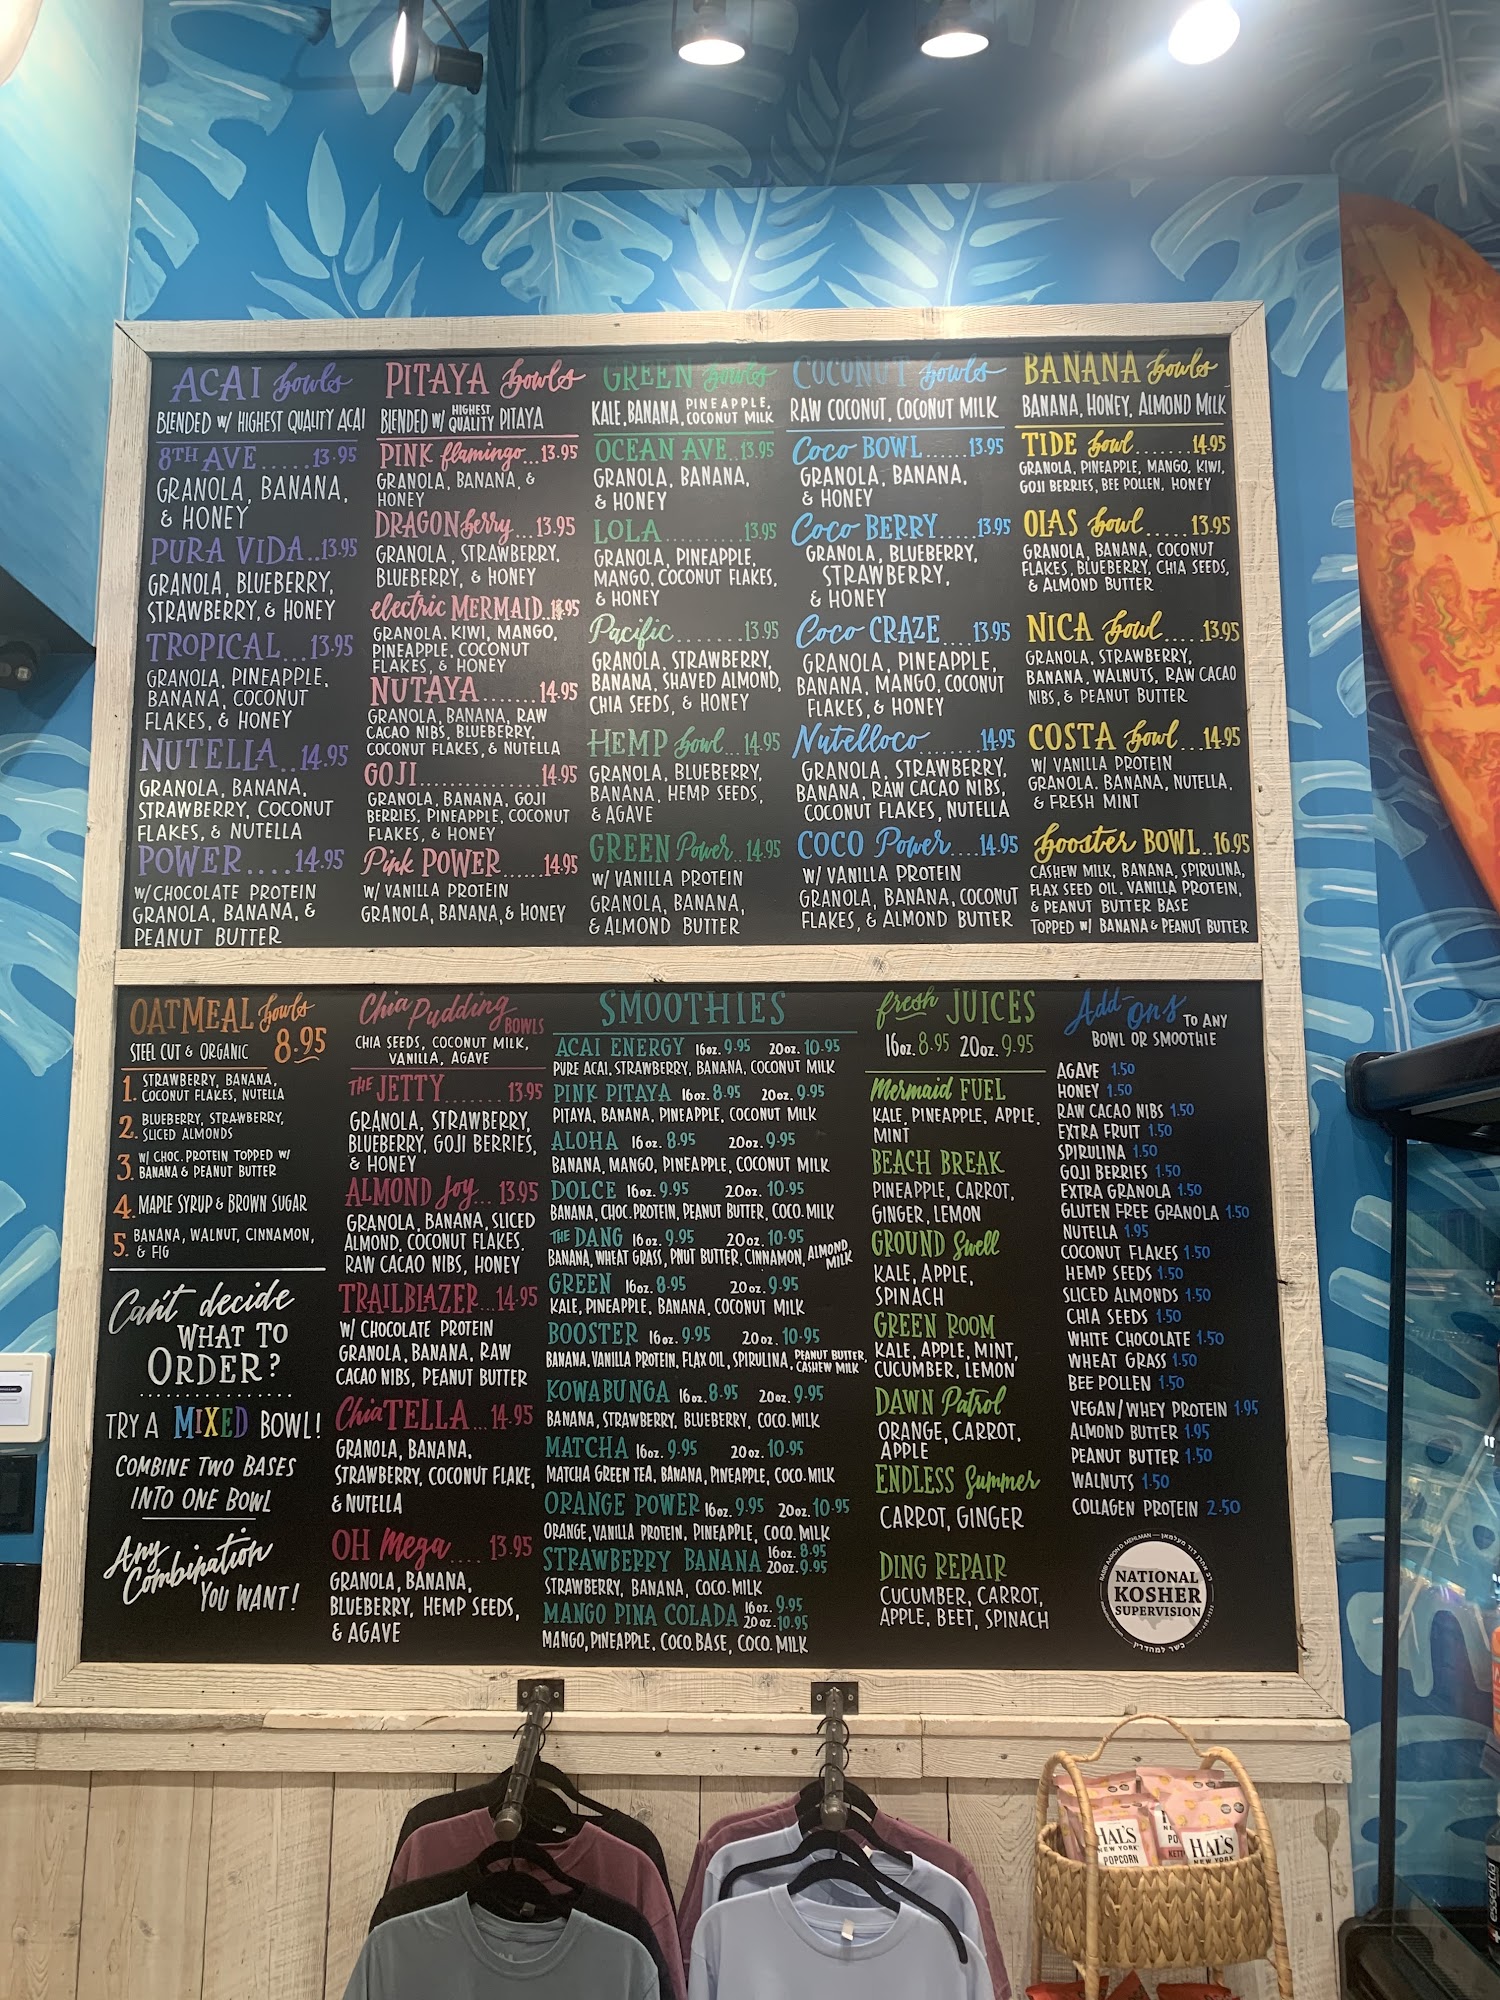 ACAI bowls
BLENDED W/ HIGHEST QUALITY ACAI
8TH AVE.....13.95
GRANOLA, BANANA,
& HONEY
PURA VIDA..13.95
GRANOLA, BLUEBERRY,
STRAWBERRY, & HONEY
TROPICAL...13.95
GRANOLA, PINEAPPLE,
BANANA, COCONUT
FLAKES, & HONEY
NUTELLA..14.95
GRANOLA, BANANA,
STRAWBERRY, COCONUT
FLAKES, & NUTELLA
POWER....14.95
W/CHOCOLATE PROTEIN
GRANOLA, BANANA, &
PEANUT BUTTER
PITAYA bowls
BLENDED W/ HIGHEST QUALITY PITAYA
PINK flamingo...13.95
GRANOLA, BANANA, &
HONEY
DRAGON berry...13.95
GRANOLA, STRAWBERRY,
BLUEBERRY, & HONEY
electric MERMAID..
GRANOLA, KIWI, MANGO,
PINEAPPLE, COCONUT
FLAKES, & HONEY
NUTAYA.......14.95
GRANOLA, BANANA, RAW
CACAO NIBS, BLUEBERRY,
COCONUT FLAKES, & NUTELLA
GOJI..............14.95
GRANOLA, BANANA, GOJI
BERRIES, PINEAPPLE, COCONUT
FLAKES, & HONEY
Pink POWER......14.95
W/ VANILLA PROTEIN
GRANOLA, BANANA, & HONEY
GREEN bowls
KALE, BANANA, PINEAPPLE, COCONUT MILK
OCEAN AVE..13.95
GRANOLA, BANANA,
& HONEY
LOLA...........13.95
GRANOLA, PINEAPPLE,
MANGO, COCONUT FLAKES,
& HONEY
Pacific........13.95
GRANOLA, STRAWBERRY,
BANANA, SHAVED ALMOND,
CHIA SEEDS, & HONEY
HEMP bowl...14.95
GRANOLA, BLUEBERRY,
BANANA, HEMP SEEDS,
& AGAVE
GREEN Power..14.95
W/ VANILLA PROTEIN
GRANOLA, BANANA,
& ALMOND BUTTER
COCONUT bowls
RAW COCONUT, COCONUT MILK
Coco BOWL......13.95
GRANOLA, BANANA,
& HONEY
Coco BERRY.....13.95
GRANOLA, BLUEBERRY,
STRAWBERRY,
& HONEY
Coco CRAZE....13.95
GRANOLA, PINEAPPLE,
BANANA, MANGO, COCONUT
FLAKES, & HONEY
Nutelloco........14.95
GRANOLA, STRAWBERRY,
BANANA, RAW CACAO NIBS,
COCONUT FLAKES, NUTELLA
COCO Power....14.95
W/ VANILLA PROTEIN
GRANOLA, BANANA, COCONUT
FLAKES, & ALMOND BUTTER
BANANA bowls
BANANA, HONEY, ALMOND MILK
TIDE bowl........14.95
GRANOLA, PINEAPPLE, MANGO, KIWI,
GOJI BERRIES, BEE POLLEN, HONEY
OLAS bowl......13.95
GRANOLA, BANANA, COCONUT
FLAKES, BLUEBERRY, CHIA SEEDS,
& ALMOND BUTTER
NICA bowl.....13.95
GRANOLA, STRAWBERRY,
BANANA, WALNUTS, RAW CACAO
NIBS, & PEANUT BUTTER
COSTA bowl...14.95
W/ VANILLA PROTEIN
GRANOLA, BANANA, NUTELLA,
& FRESH MINT
booster BOWL..16.95
CASHEW MILK, BANANA, SPIRULINA,
FLAX SEED OIL, VANILLA PROTEIN,
& PEANUT BUTTER BASE
TOPPED W/ BANANA & PEANUT BUTTER
OATMEAL bowls
STEEL CUT & ORGANIC 8.95
1. STRAWBERRY, BANANA,
COCONUT FLAKES, NUTELLA
2. BLUEBERRY, STRAWBERRY,
SLICED ALMONDS
3. W/ CHOC. PROTEIN TOPPED W/
BANANA & PEANUT BUTTER
4. MAPLE SYRUP & BROWN SUGAR
5. BANANA, WALNUT, CINNAMON,
& FIG
Can't decide
WHAT TO
ORDER?
TRY A MIXED BOWL!
COMBINE TWO BASES
INTO ONE BOWL
Any
Combination
YOU WANT!
Chia Pudding BOWLS
CHIA SEEDS, COCONUT MILK,
VANILLA, AGAVE
THE JETTY.......13.95
GRANOLA, STRAWBERRY,
BLUEBERRY, GOJI BERRIES,
& HONEY
ALMOND Joy...13.95
GRANOLA, BANANA, SLICED
ALMOND, COCONUT FLAKES,
RAW CACAO NIBS, HONEY
TRAILBLAZER...14.95
W/ CHOCOLATE PROTEIN
GRANOLA, BANANA, RAW
CACAO NIBS, PEANUT BUTTER
ChiaTELLA...14.95
GRANOLA, BANANA,
STRAWBERRY, COCONUT FLAKE,
& NUTELLA
OH Mega....13.95
GRANOLA, BANANA,
BLUEBERRY, HEMP SEEDS,
& AGAVE
SMOOTHIES
ACAI ENERGY 16oz. 9.95 20oz. 10.95
PURE ACAI, STRAWBERRY, BANANA, COCONUT MILK
PINK PITAYA 16oz. 8.95 20oz. 9.95
PITAYA, BANANA, PINEAPPLE, COCONUT MILK
ALOHA 16oz. 8.95 20oz. 9.95
BANANA, MANGO, PINEAPPLE, COCONUT MILK
DOLCE 16oz. 9.95 20oz. 10.95
BANANA, CHOC. PROTEIN, PEANUT BUTTER, COCO. MILK
THE DANG 16oz. 9.95 20oz. 10.95
BANANA, WHEAT GRASS, PNUT BUTTER, CINNAMON, ALMOND MILK
GREEN 16oz. 8.95 20oz. 9.95
KALE, PINEAPPLE, BANANA, COCONUT MILK
BOOSTER 16oz. 9.95 20oz. 10.95
BANANA, VANILLA PROTEIN, FLAX OIL, SPIRULINA, PEANUT BUTTER, CASHEW MILK
KOWABUNGA 16oz. 8.95 20oz. 9.95
BANANA, STRAWBERRY, BLUEBERRY, COCO. MILK
MATCHA 16oz. 9.95 20oz. 10.95
MATCHA GREEN TEA, BANANA, PINEAPPLE, COCO. MILK
ORANGE POWER 16oz. 9.95 20oz. 10.95
ORANGE, VANILLA PROTEIN, PINEAPPLE, COCO. MILK
STRAWBERRY BANANA 16oz. 8.95 20oz. 9.95
STRAWBERRY, BANANA, COCO. MILK
MANGO PINA COLADA 16oz. 9.95 20oz. 10.95
MANGO, PINEAPPLE, COCO. BASE, COCO. MILK
fresh JUICES
16oz. 8.95 20oz. 9.95
Mermaid FUEL
KALE, PINEAPPLE, APPLE,
MINT
BEACH BREAK
PINEAPPLE, CARROT,
GINGER, LEMON
GROUND Swell
KALE, APPLE,
SPINACH
GREEN ROOM
KALE, APPLE, MINT,
CUCUMBER, LEMON
DAWN Patrol
ORANGE, CARROT,
APPLE
ENDLESS Summer
CARROT, GINGER
DING REPAIR
CUCUMBER, CARROT,
APPLE, BEET, SPINACH
Add-Ons TO ANY
BOWL OR SMOOTHIE
AGAVE 1.50
HONEY 1.50
RAW CACAO NIBS 1.50
EXTRA FRUIT 1.50
SPIRULINA 1.50
GOJI BERRIES 1.50
EXTRA GRANOLA 1.50
GLUTEN FREE GRANOLA 1.50
NUTELLA 1.95
COCONUT FLAKES 1.50
HEMP SEEDS 1.50
SLICED ALMONDS 1.50
CHIA SEEDS 1.50
WHITE CHOCOLATE 1.50
WHEAT GRASS 1.50
BEE POLLEN 1.50
VEGAN/WHEY PROTEIN 1.95
ALMOND BUTTER 1.95
PEANUT BUTTER 1.50
WALNUTS 1.50
COLLAGEN PROTEIN 2.50
RABBI AARON D. MEHLMAN
NATIONAL
KOSHER
SUPERVISION
כשר למהדרין
HAL'S
NEW YORK
POPCORN
HAL'S
NEW YORK
essentia